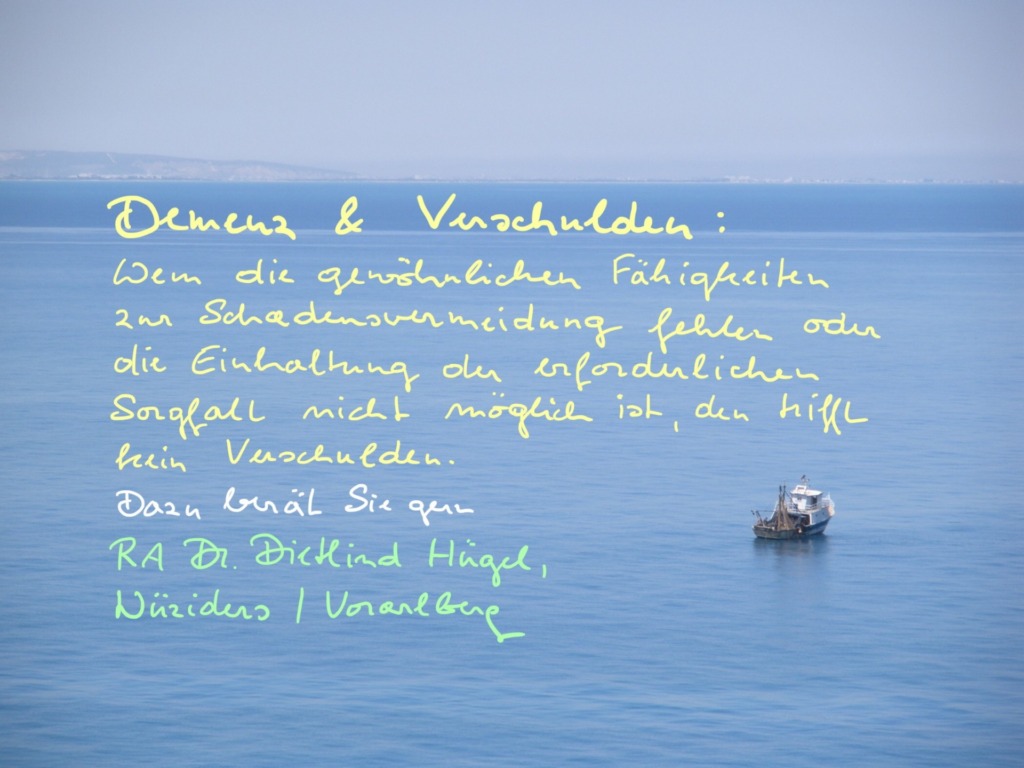 Demenz & Verschulden:
Wem die gewöhnlichen Fähigkeiten
zur Schadensvermeidung fehlen oder
die Einhaltung der erforderlichen
Sorgfalt nicht möglich ist, den trifft
kein Verschulden.
Dazu berät Sie gern
RA Dr. Dietlind Hügel,
Nüziders / Vorarlberg